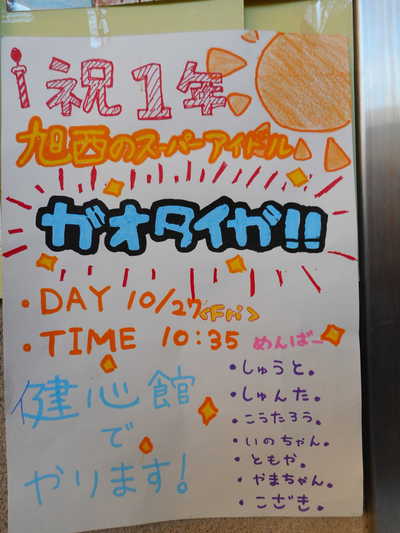 祝1年
旭西のスーパーアイドル
ガオタイガ!!
・DAY 10/27<Fri>
・TIME 10:35
めんばー
・しゅうと。
・しゅんた。
・こうたろう。
・いのちゃん。
・ともや。
・やまちゃん。
・こざき。
健心館
で
やります!